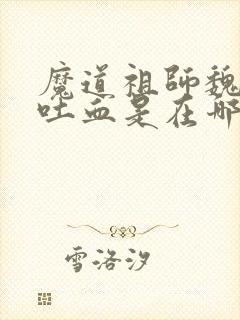 魔道祖師魏
吐血是在哪
雪洛汐